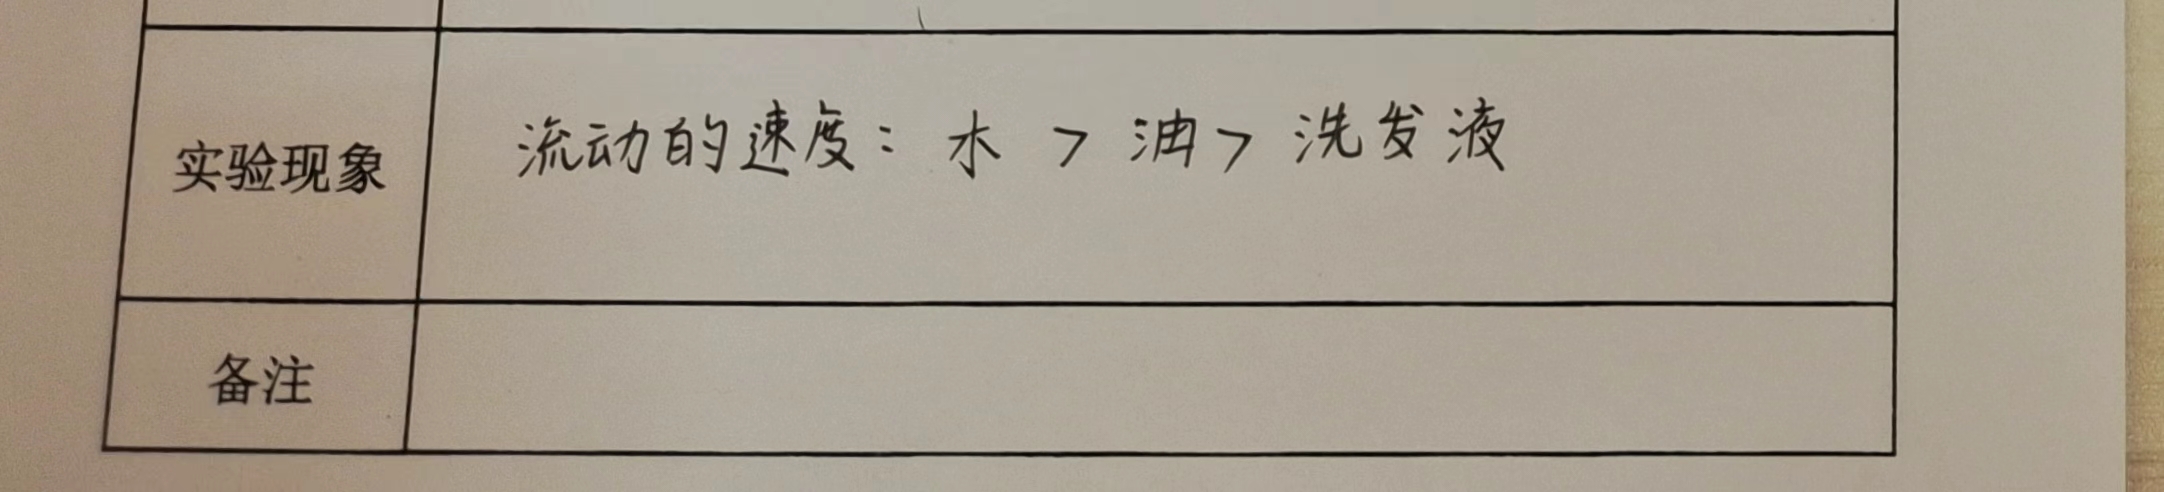 实验现象
流动的速度：水 > 油 > 洗发液
备注